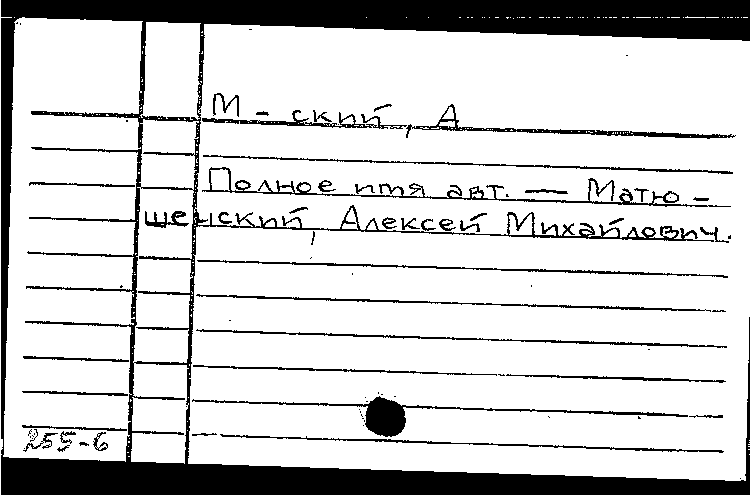 М-ский, А
Полное имя авт. — Матю-
шенский, Алексей Михайлович.
255-6